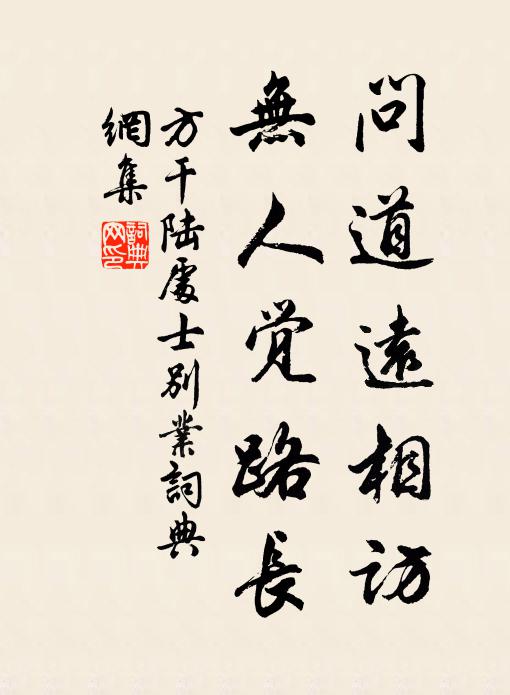 問道遠相訪
無人覚路長
方干陆處士别業詞典
網集
詞典网印